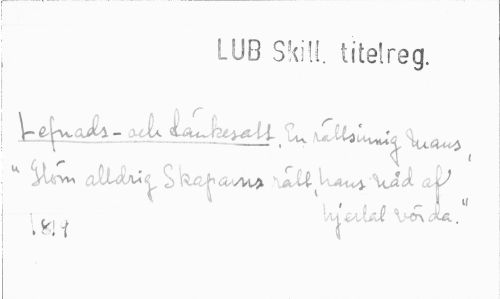 LUB Skill. titelreg.
Lefnads- och tänkesätt, En rättsinnig mans,
" Glöm alldrig Skaparns rätt, hans nåd af
hjertat vörda."
1819